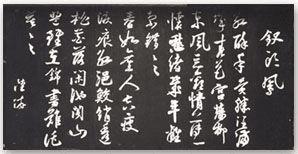 釵頭鳳
紅酥手黃縢酒滿
城春色宮牆柳
東風惡歡情薄一
懷愁緒幾年離
索錯々々
春如舊人空瘦
淚痕紅浥鮫綃透
桃花落閒池閣山
盟雖在錦書難託
莫々々